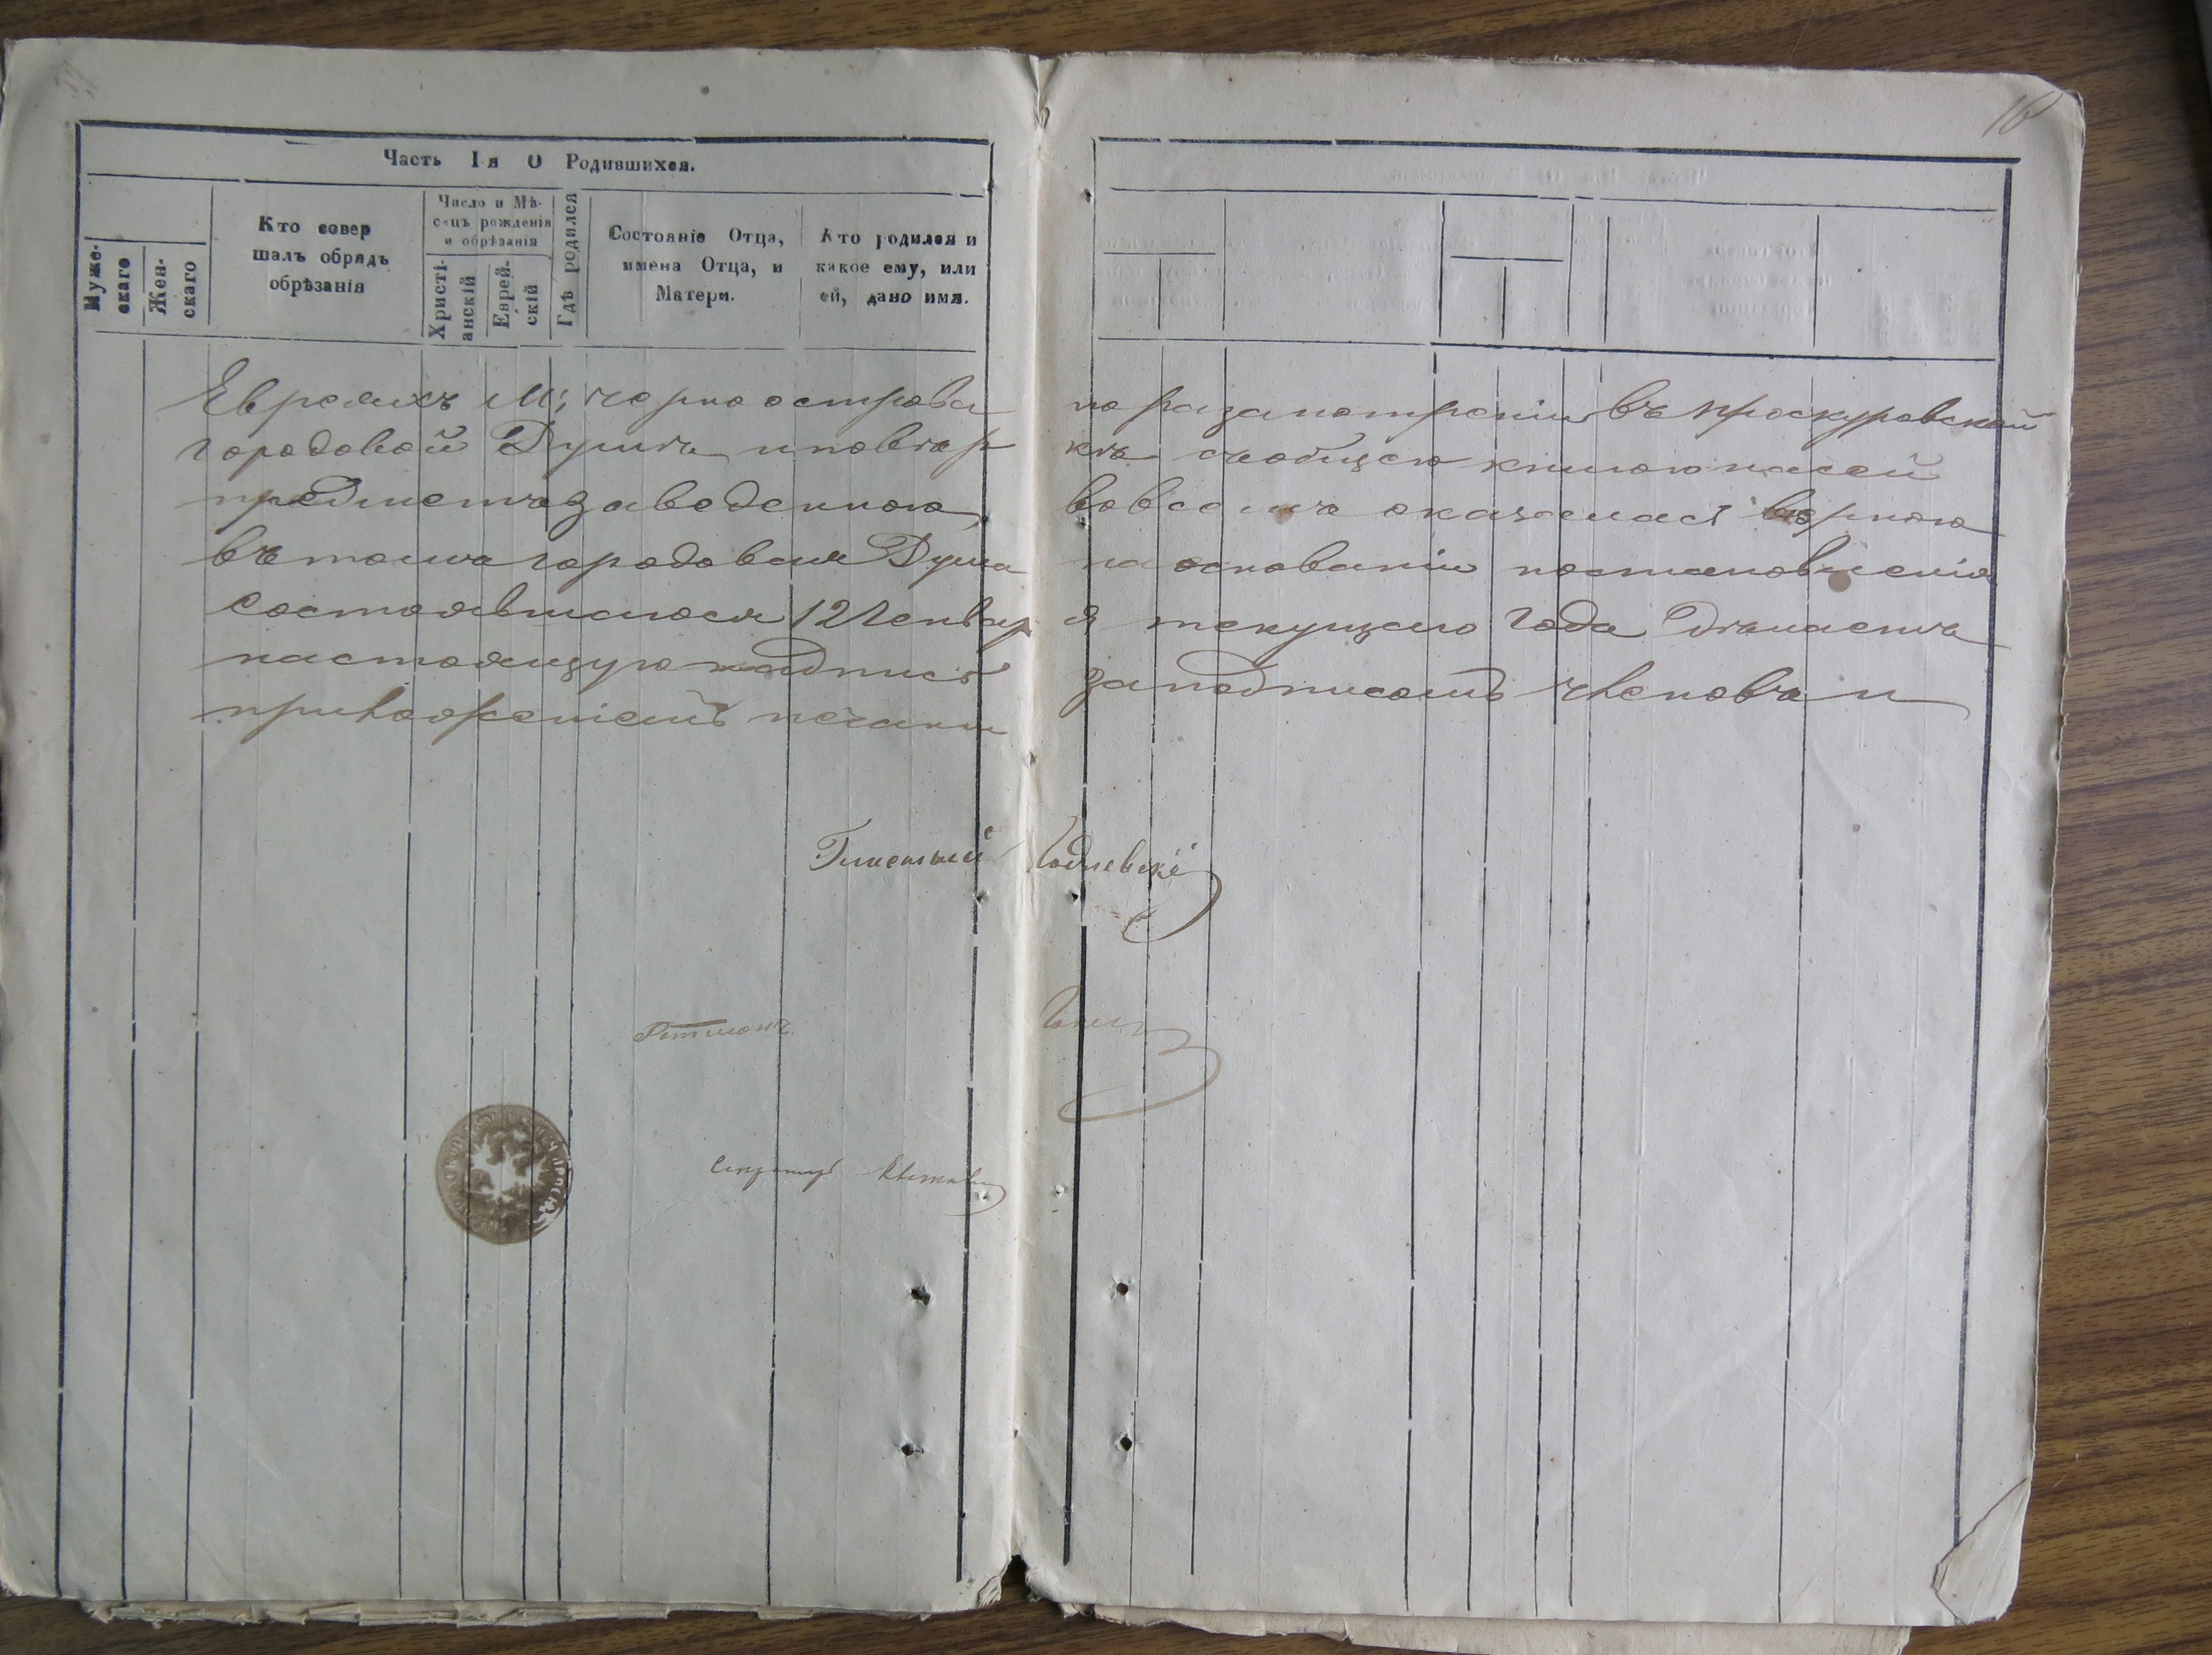 16
Часть Iя О Родившихся.
Муже-
скаго
Жен-
скаго
Кто совер
шалъ обрядъ
обрѣзанія
Число и Мѣ-
сяцъ рожденія
и обрѣзанія
Христі-
анскій
Еврей-
скій
Гдѣ родился
Состояніе Отца,
имена Отца, и
Матери.
Кто родился и
какое ему, или
ей, дано имя.
Евреяхъ М: Чорноострова по разсмотреніи въ Проскуровской
городовой Думѣ и повѣркѣ съ общею книгою по сей
предметъ заведенною, во всемъ оказалась верною
въ томъ городовая Дума на основаніи постановленія
состоявшагося 12 Генваря текущаго года дѣлаетъ
настоящую надпись за подписомъ членовъ и
приложеніемъ печати
Гласный
Ротманъ
Секретарь